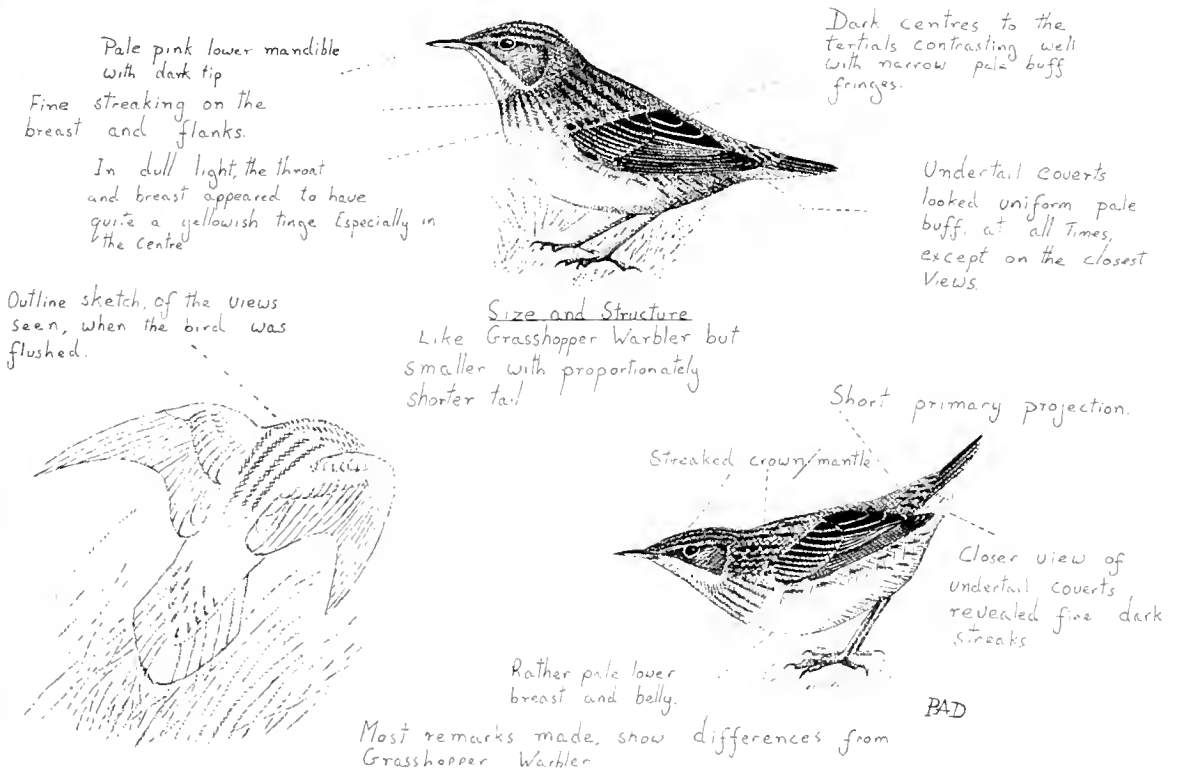 Pale pink lower mandible
with dark tip
Fine streaking on the
breast and flanks.
In dull light, the throat
and breast appeared to have
quite a yellowish tinge Especially in
the centre
Dark centres to the
tertials contrasting well
with narrow pale buff
fringes.
Undertail coverts
looked uniform pale
buff, at all Times,
except on the closest
Views.
Outline sketch, of the views
seen, when the bird was
flushed.
Size and Structure
Like Grasshopper Warbler but
smaller with proportionately
shorter tail
Short primary projection.
Streaked crown/mantle
Closer view of
undertail coverts
revealed fine dark
streaks
Rather pale lower
breast and belly.
BAD
Most remarks made, show differences from
Grasshopper Warbler